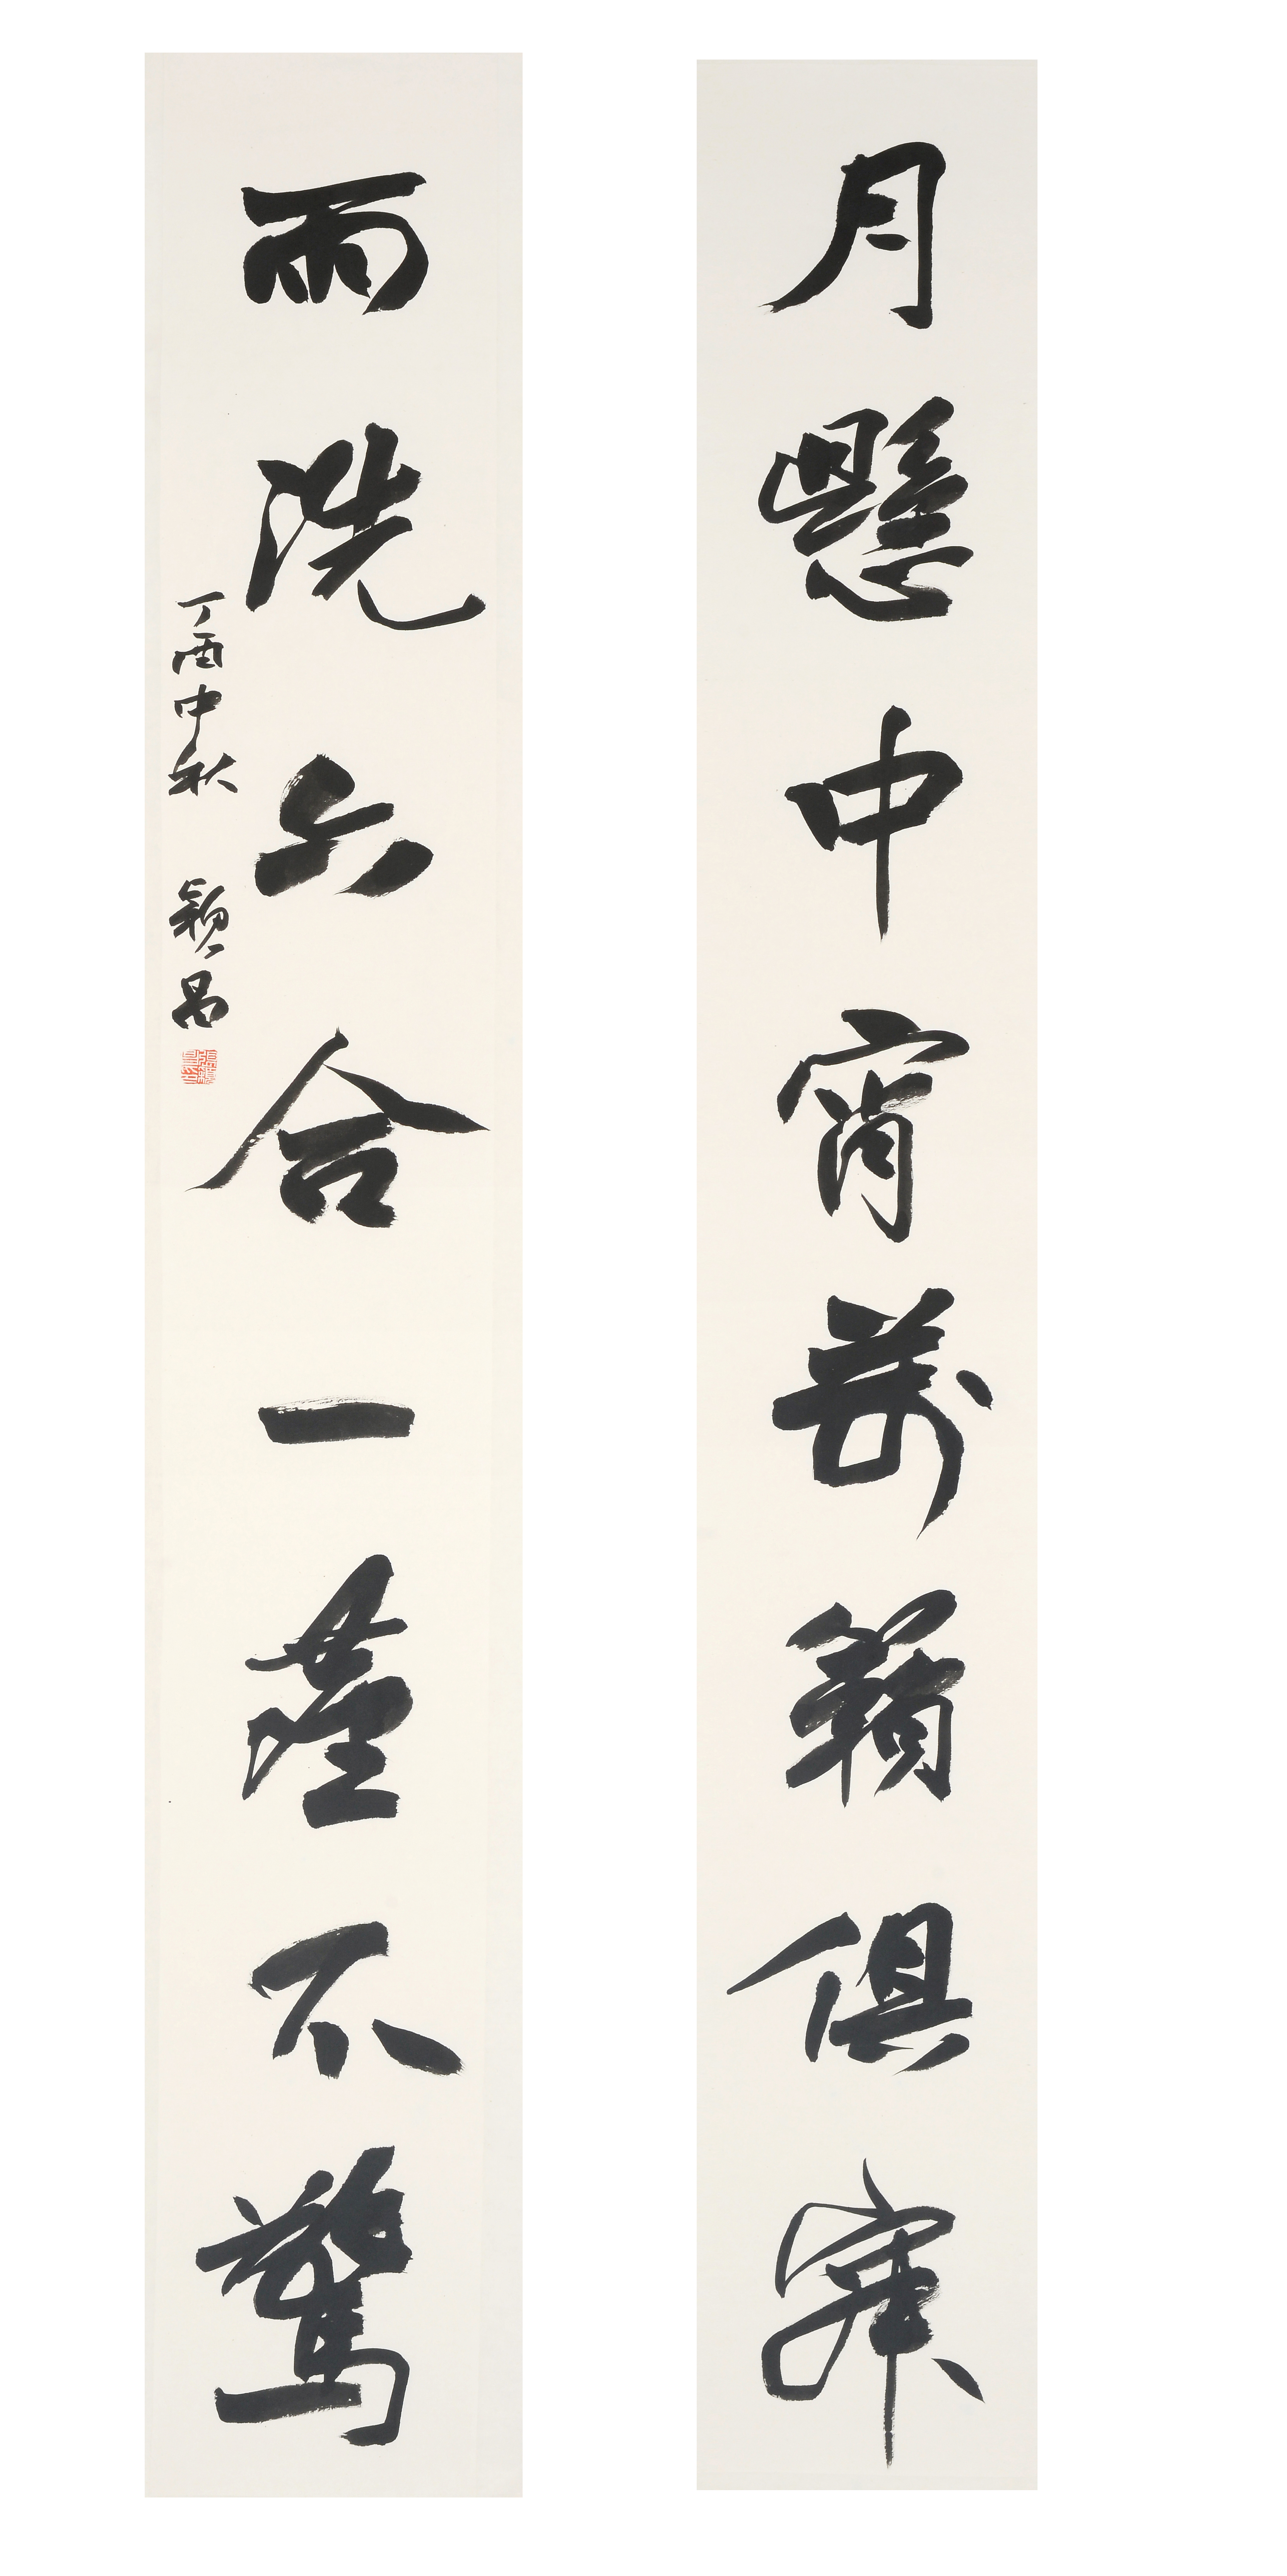 月懸中宵萬籟俱寂
雨洗六合一塵不驚
丁酉中秋 穎昌